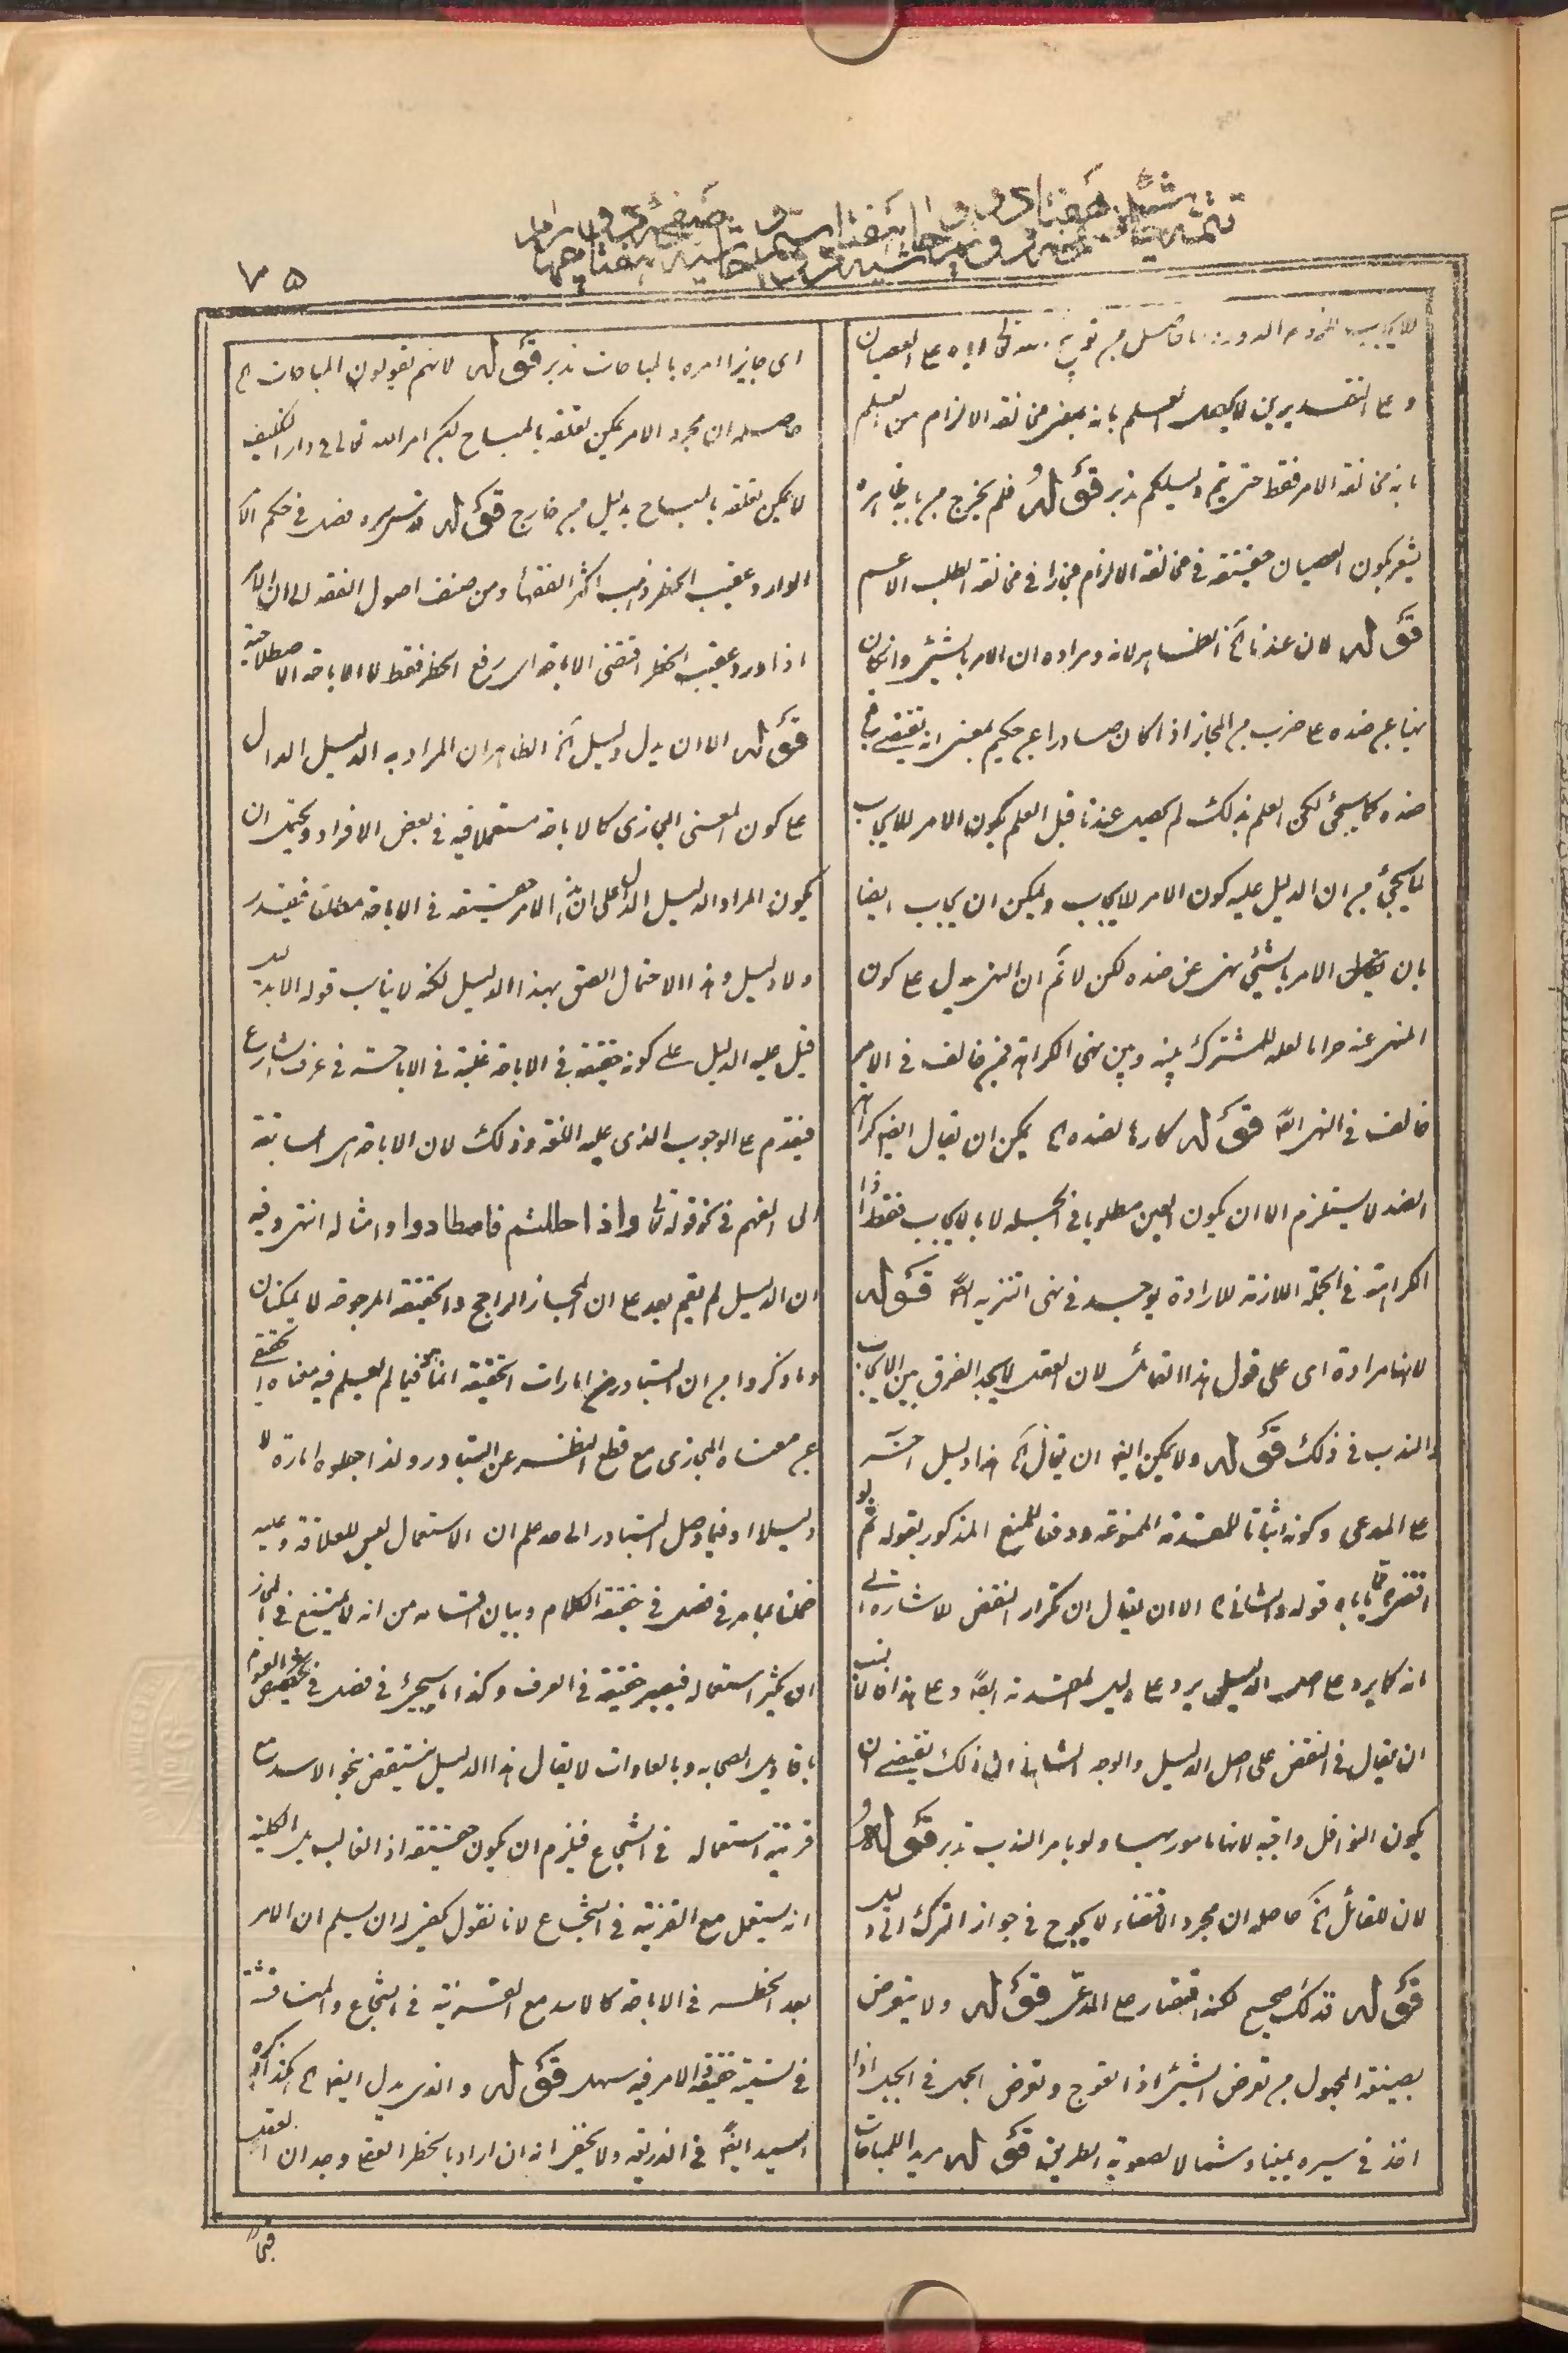 ٧٥
وعلى التقديرين لا يحصل العلم بانه بمعنى مخالفة الالزام من العلم
بانه مخالفة الامر فقط حتى يتم دليلكم تدبر قوله فلم يخرج من
يشعر بكون العصيان حقيقة في مخالفة الالزام مجازا في مخالفة الطلب الاعم
قوله لان عندنا الخ الظاهر لانه ومراده ان الامر بالشئ وان كان
نهيا عن ضده على ضرب من المجاز اذا كان صادرا عن حكيم بمعنى انه يقتضى
ضده كما سيجئ لكن العلم بذلك لم يحصل عندنا قبل العلم بكون الامر للايجاب
لما سيجئ من ان الدليل عليه كون الامر للايجاب ويمكن ان يجاب ايضا
بان الامر بالشئ نهى عن ضده لكن لا نم ان النهى يدل على كون
المنهى عنه حراما لعله للمشترك بينه وبين نهى الكراهة فمن خالف في الامر
خالف في النهى ايضا قوله كارها لضده الخ يمكن ان يقال ايضا كراهة
الضد لا يستلزم الا ان يكون العين مطلوبا في الجملة لا بالايجاب فقط اذ
الكراهة في الجملة اللازمة للارادة يوجد في نهى التنزيه ايضا قوله
لانها مرادة اى على قول هذا القائل لان العقل لا يجد الفرق بين الايجاب
والندب في ذلك قوله ولا يمكن ايضا ان يقال الخ هذا دليل اخر
على المدعى وكونه اثباتا للمقدمة الممنوعة ودفعا للمنع المذكور بقوله ثم لو
قوله والثاني الخ الا ان يقال ان تكرار النقض للاشارة الى
انه كما يرد على اصل الدليل يرد على دليل المقدمة ايضا وعلى هذا
ان يقال في النقض على اصل الدليل والوجه الثاني ان ذلك يقتضى ان
يكون النوافل واجبة لانها مامور بها ولو بامر الندب تدبر قوله
لان للقائل الخ حاصله ان مجرد الاقتضاء لا يحوج في جواز الترك الى دليل
قوله قد تكلم صحيح لكنه اقتصار على المدعى قوله ولا يتعرض
بصيغة المجهول من تعرض الشئ اذا تعوج وتعرض الجمل في الجبل اذا
اخذ في سيره يمينا وشمالا لصعوبة الطريق قوله مريد اللمباحات
اى جايزا امره بالمباحات تدبر قوله لانهم يقولون المباحات الخ
حاصله ان مجرد الامر يمكن تعلقه بالمباح لكن امر الله تعالى في دار التكليف
لا يمكن تعلقه بالمباح بدليل من خارج قوله قدس سره فصل في حكم الامر
الوارد عقيب الحظر ذهب اكثر الفقهاء ومن صنف اصول الفقه الى ان الامر
اذا ورد عقيب الحظر اقتضى الاباحة اى رفع الحظر فقط لا الاباحة الاصطلاحية
قوله الا ان يدل دليل الخ الظاهر ان المراد به الدليل الدال
على كون المعنى المجازى كالاباحة مستعملا فيه في بعض الافراد ويحتمل ان
يكون المراد الدليل الدال على ان هذا الامر حقيقة في الاباحة مطلقا فيقدر
ولا دليل وهذا الاحتمال الصق بهذا الدليل لكنه لا يناسب قوله الا بدليل
قيل عليه الدليل على كونه حقيقة في الاباحة غلبته في الاباحة في عرف الشارع
فيقدم على الوجوب الذى عليه اللغة وذلك لان الاباحة هى السابقة
الى الفهم في نحو قوله تعالى واذا حللتم فاصطادوا وامثاله انتهى وفيه
ان الدليل لم يقم بعد على ان المجاز الراجح والحقيقة المرجوحة لا يمكنان
وما ذكروا من ان التبادر من امارات الحقيقة انما هى فيما لم يعلم فيه معناه الحقيقى
عن معناه المجازى مع قطع النظر عن التبادر ولذا جعلوه امارة لا
دليلا او فيما وصل التبادر الى حد علم ان الاستعمال ليس للعلاقة وعليه
حملنا ما مر في فصل في حقيقة الكلام وبيان اقسامه من انه لا يمتنع في المجاز
ان يكثر استعماله فيصير حقيقة في العرف وكذا ما سيجئ في فصل في تخصيص العموم
باقاويل الصحابه وبالعادات لا يقال هذا الدليل ينتقض بنحو الاسد مع
قرينة استعماله في الشجاع فيلزم ان يكون حقيقة اذ الغالب بل الكلية
انه يستعمل مع القرينة في الشجاع لانا نقول يكفى له ان يسلم ان الامر
بعد الحظر في الاباحة كالاسد مع القرينة في الشجاع والمناقشة
في تسميته حقيقة الامر فيه سهل قوله والذى يدل ايضا الخ كذا ذكره
السيد ايضا في الذريعة ولا يخفى انه ان اراد بالحظر العقلى وجدان العقل